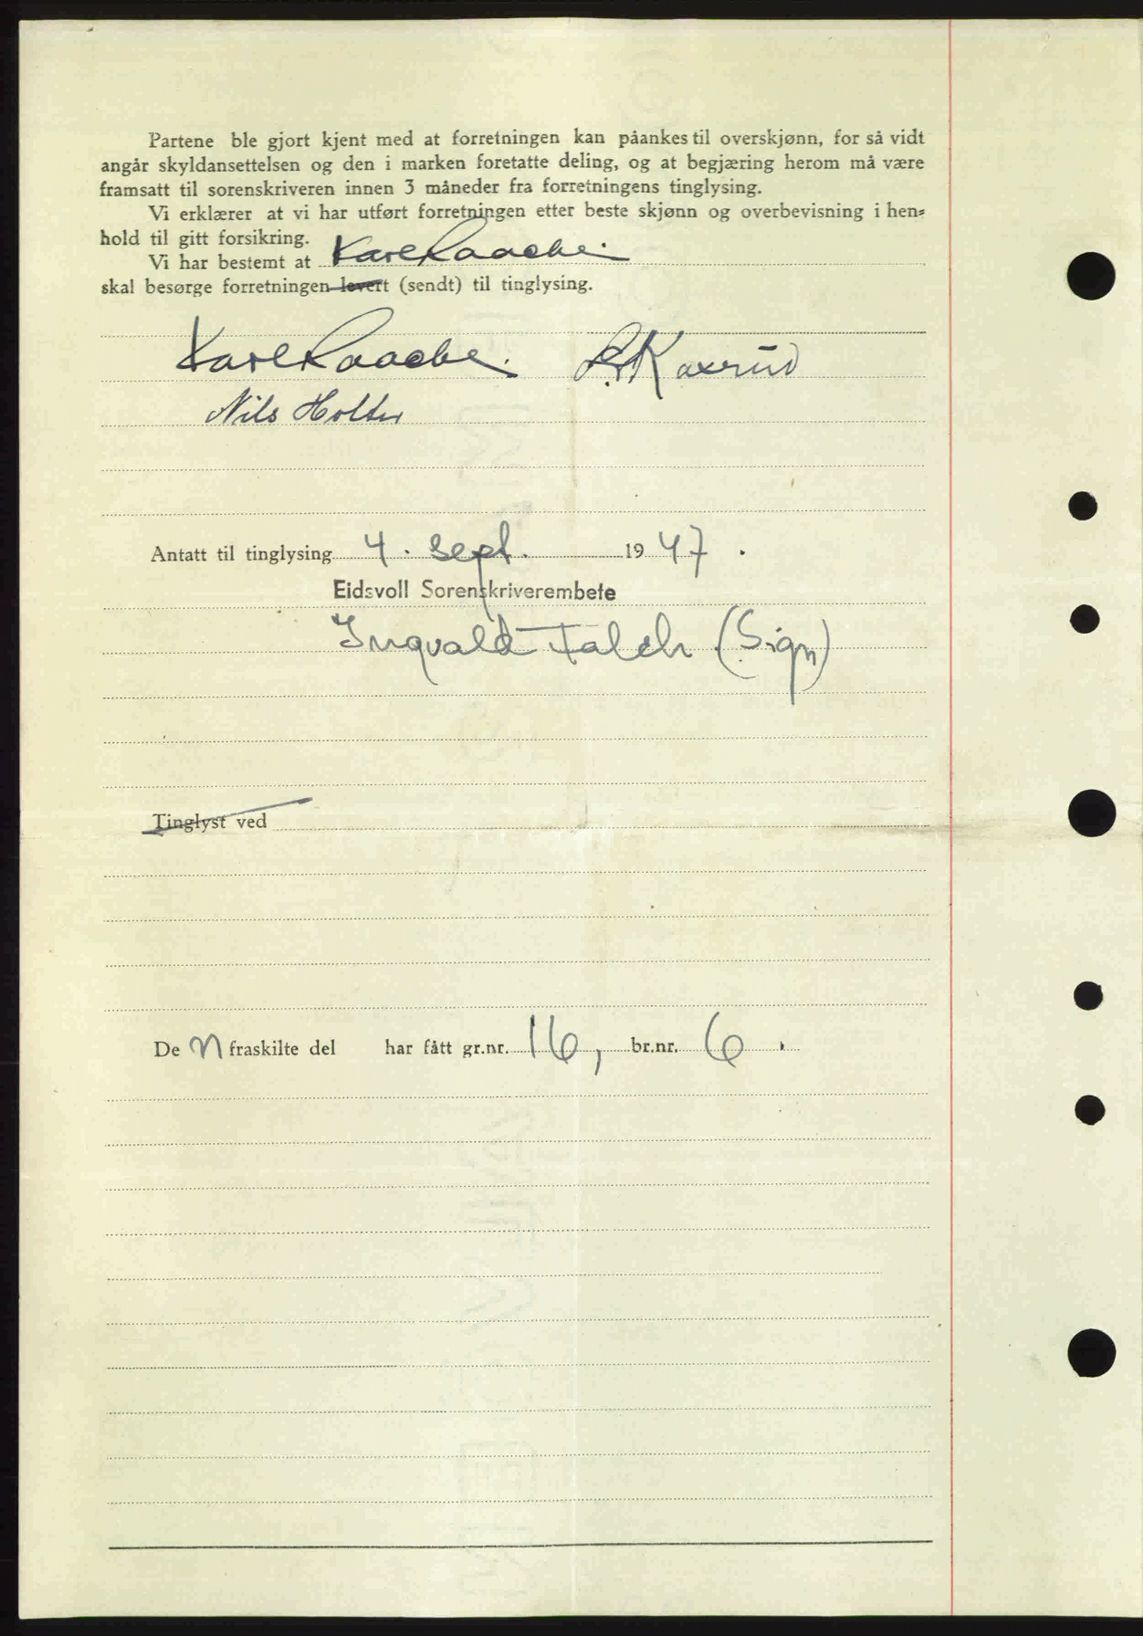 Partene ble gjort kjent med at forretningen kan påankes til overskjønn, for så vidt
angår skyldansettelsen og den i marken foretatte deling, og at begjæring herom må være
framsatt til sorenskriveren innen 3 måneder fra forretningens tinglysing.
Vi erklærer at vi har utført forretningen etter beste skjønn og overbevisning i hen=
hold til gitt forsikring.
Vi har bestemt at Karl Raache.
skal besørge forretningen levert (sendt) til tinglysing.
Karl Raache.
Nils Holter
Antatt til tinglysing 4. sept. 1947.
Eidsvoll Sorenskriverembete
Ingvald Falch (Sign)
Tinglyst ved
De n fraskilte del har fått gr.nr. 16, br.nr. 6.